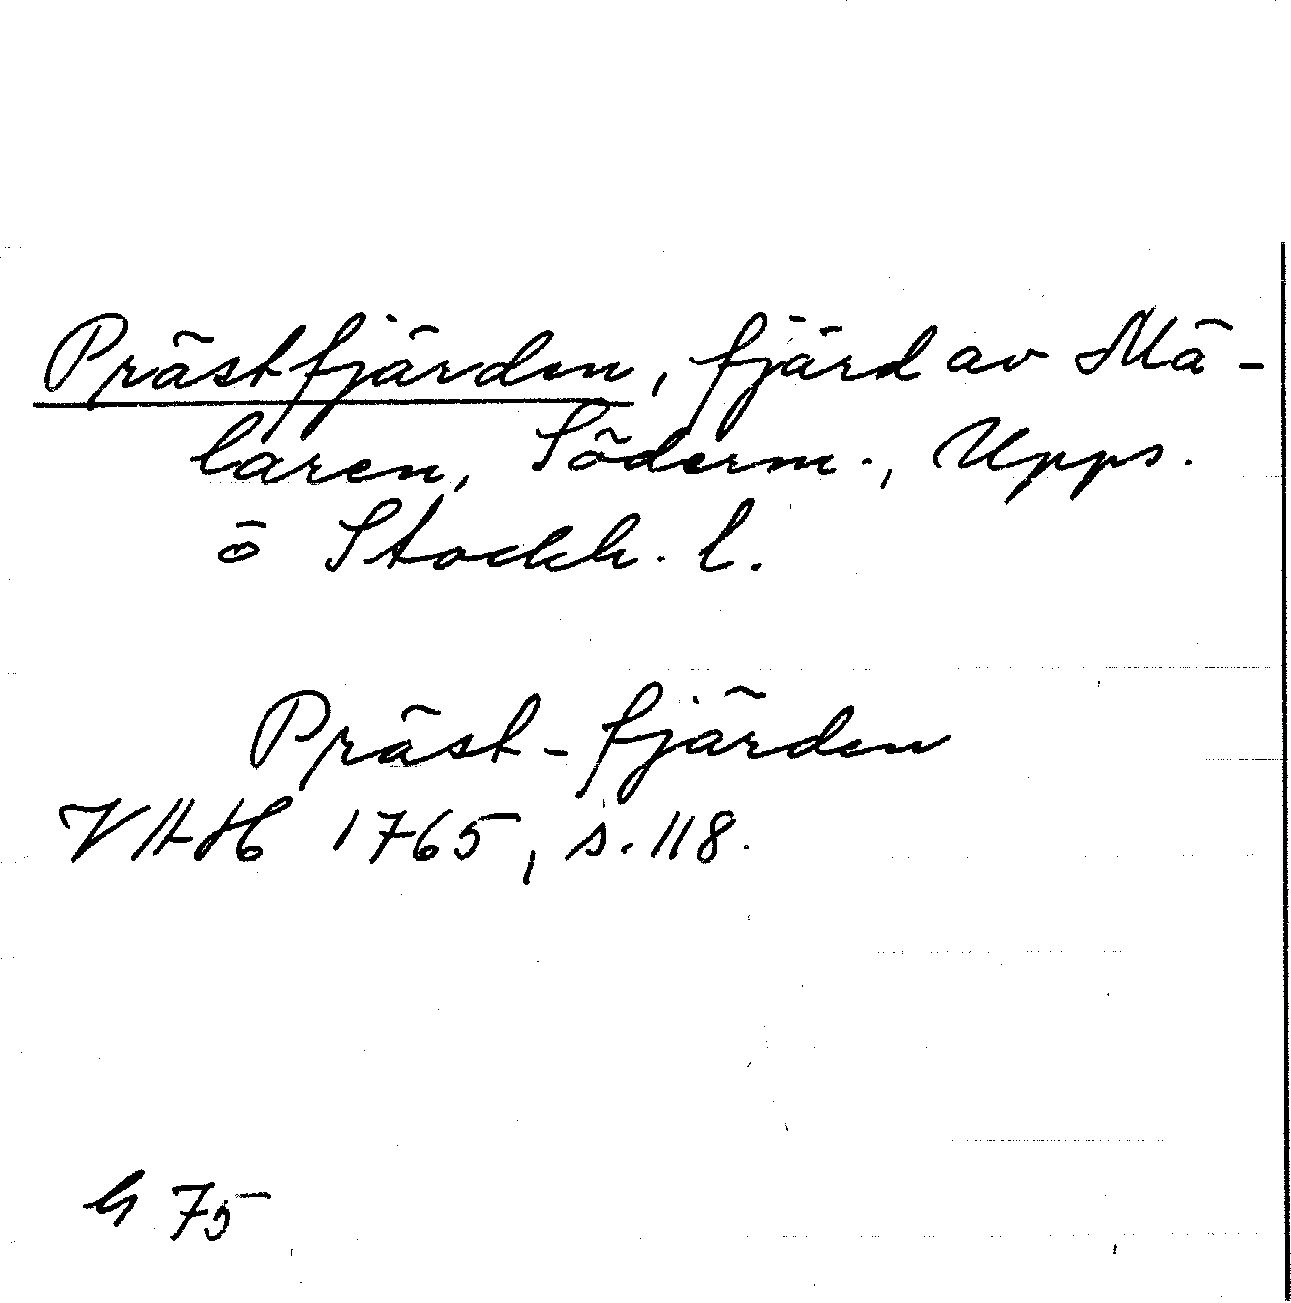 Prästfjärden, fjärd av Mä-
laren, Söderm., Upps.
o Stockh. l.
Präst-fjärden
VHAH 1765, s. 118.
75